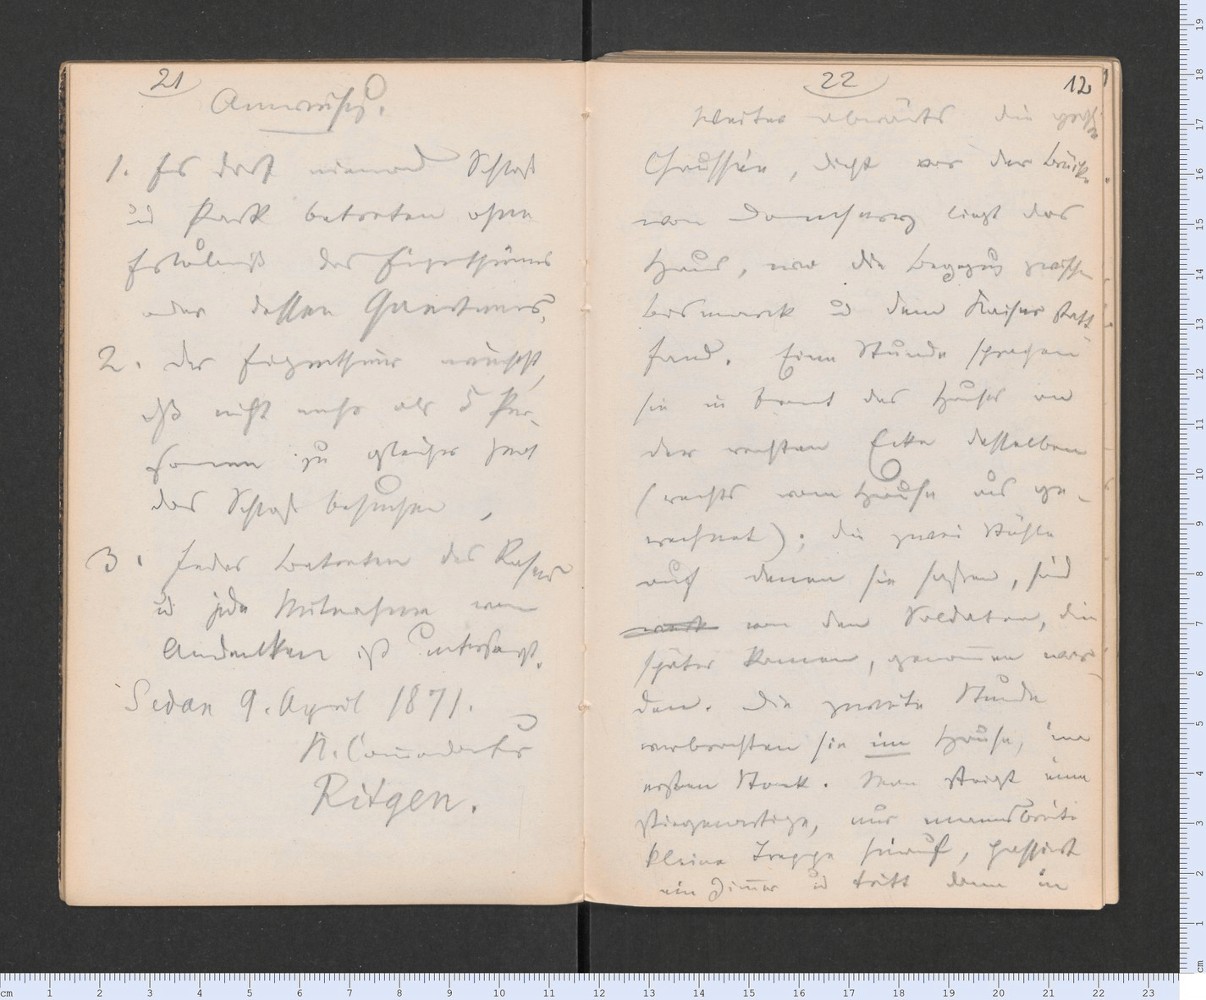 21
Anweisung.
1. Es darf niemand Schloß
und Park betreten ohne
Erlaubniß des Eigenthümers
oder dessen Gärtners.
2. Der Eigenthümer wünscht,
daß nicht mehr als 5 Per-
sonen zu gleicher Zeit
das Schloß besuchen,
3. Jedes Betreten des Rasens
und jede Mitnahme von
Andenken ist untersagt.
Sedan 9. April 1871.
K. Commandantur
Ritgen.
22
12
Weiter abwärts die große
Chaussée, dicht vor der Brücke
von Donchery liegt das
Haus, wo die Begegnung zwischen
Bismarck und dem Kaiser statt
fand. Eine Stunde sprachen
sie in Front des Hauses an
der rechten Ecke desselben
(rechts vom Hause aus ge-
rechnet); die zwei Stühle
auf denen sie saßen, sind
von den Soldaten, die
später kamen, genommen wor-
den. Die zweite Stunde
verbrachten sie im Hause, im
ersten Stock. Man steigt eine
stiegenartige, nur mannsbreite
kleine Treppe hinauf, passirt
ein Zimmer und tritt dann in